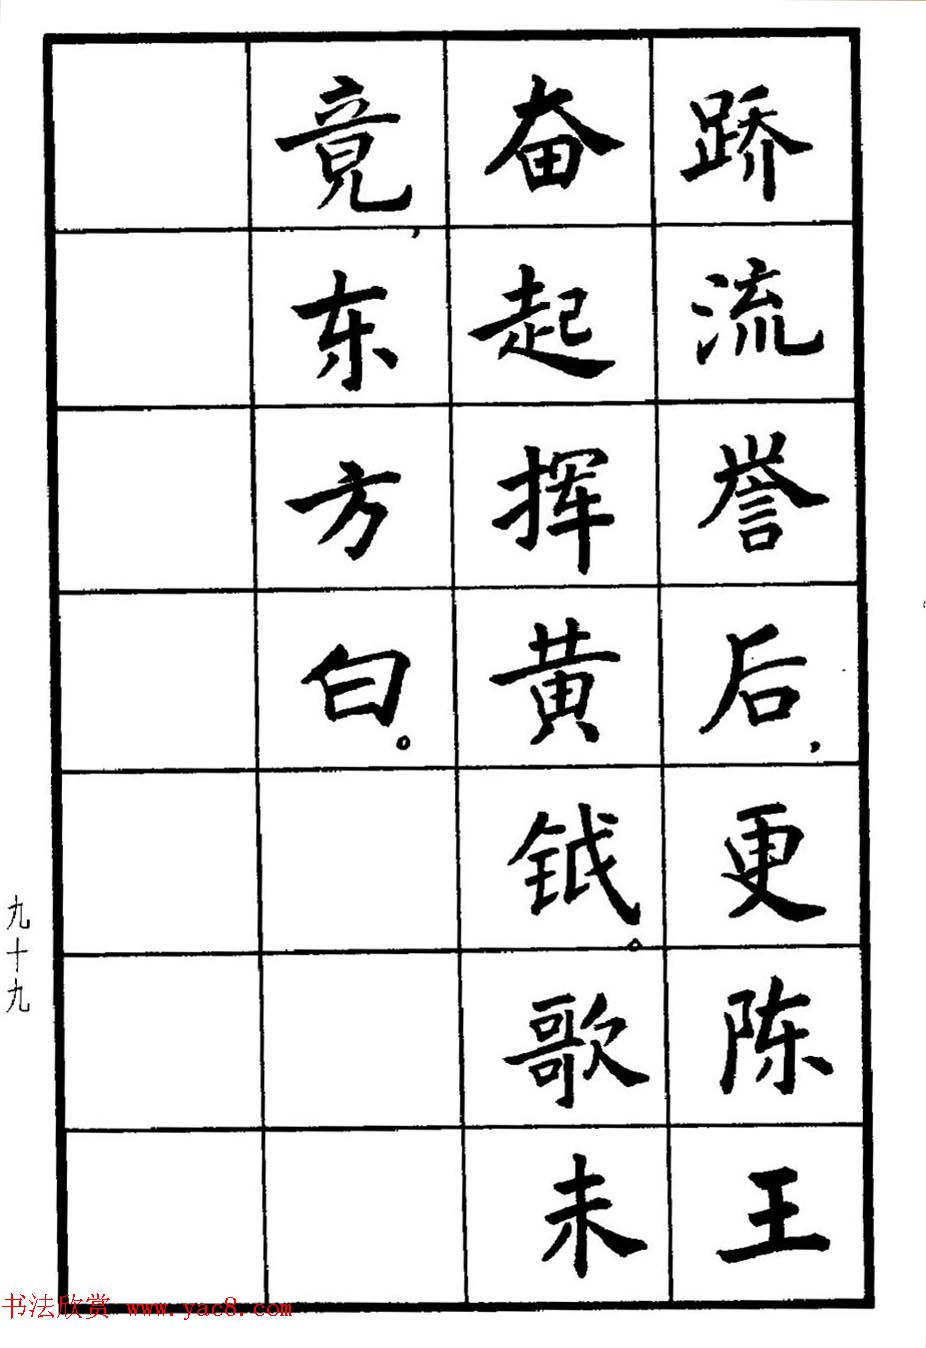 跻流誉后，更陈王
奋起挥黄钺。歌未
竟，东方白。
九十九
书法欣赏 www.yac8.com